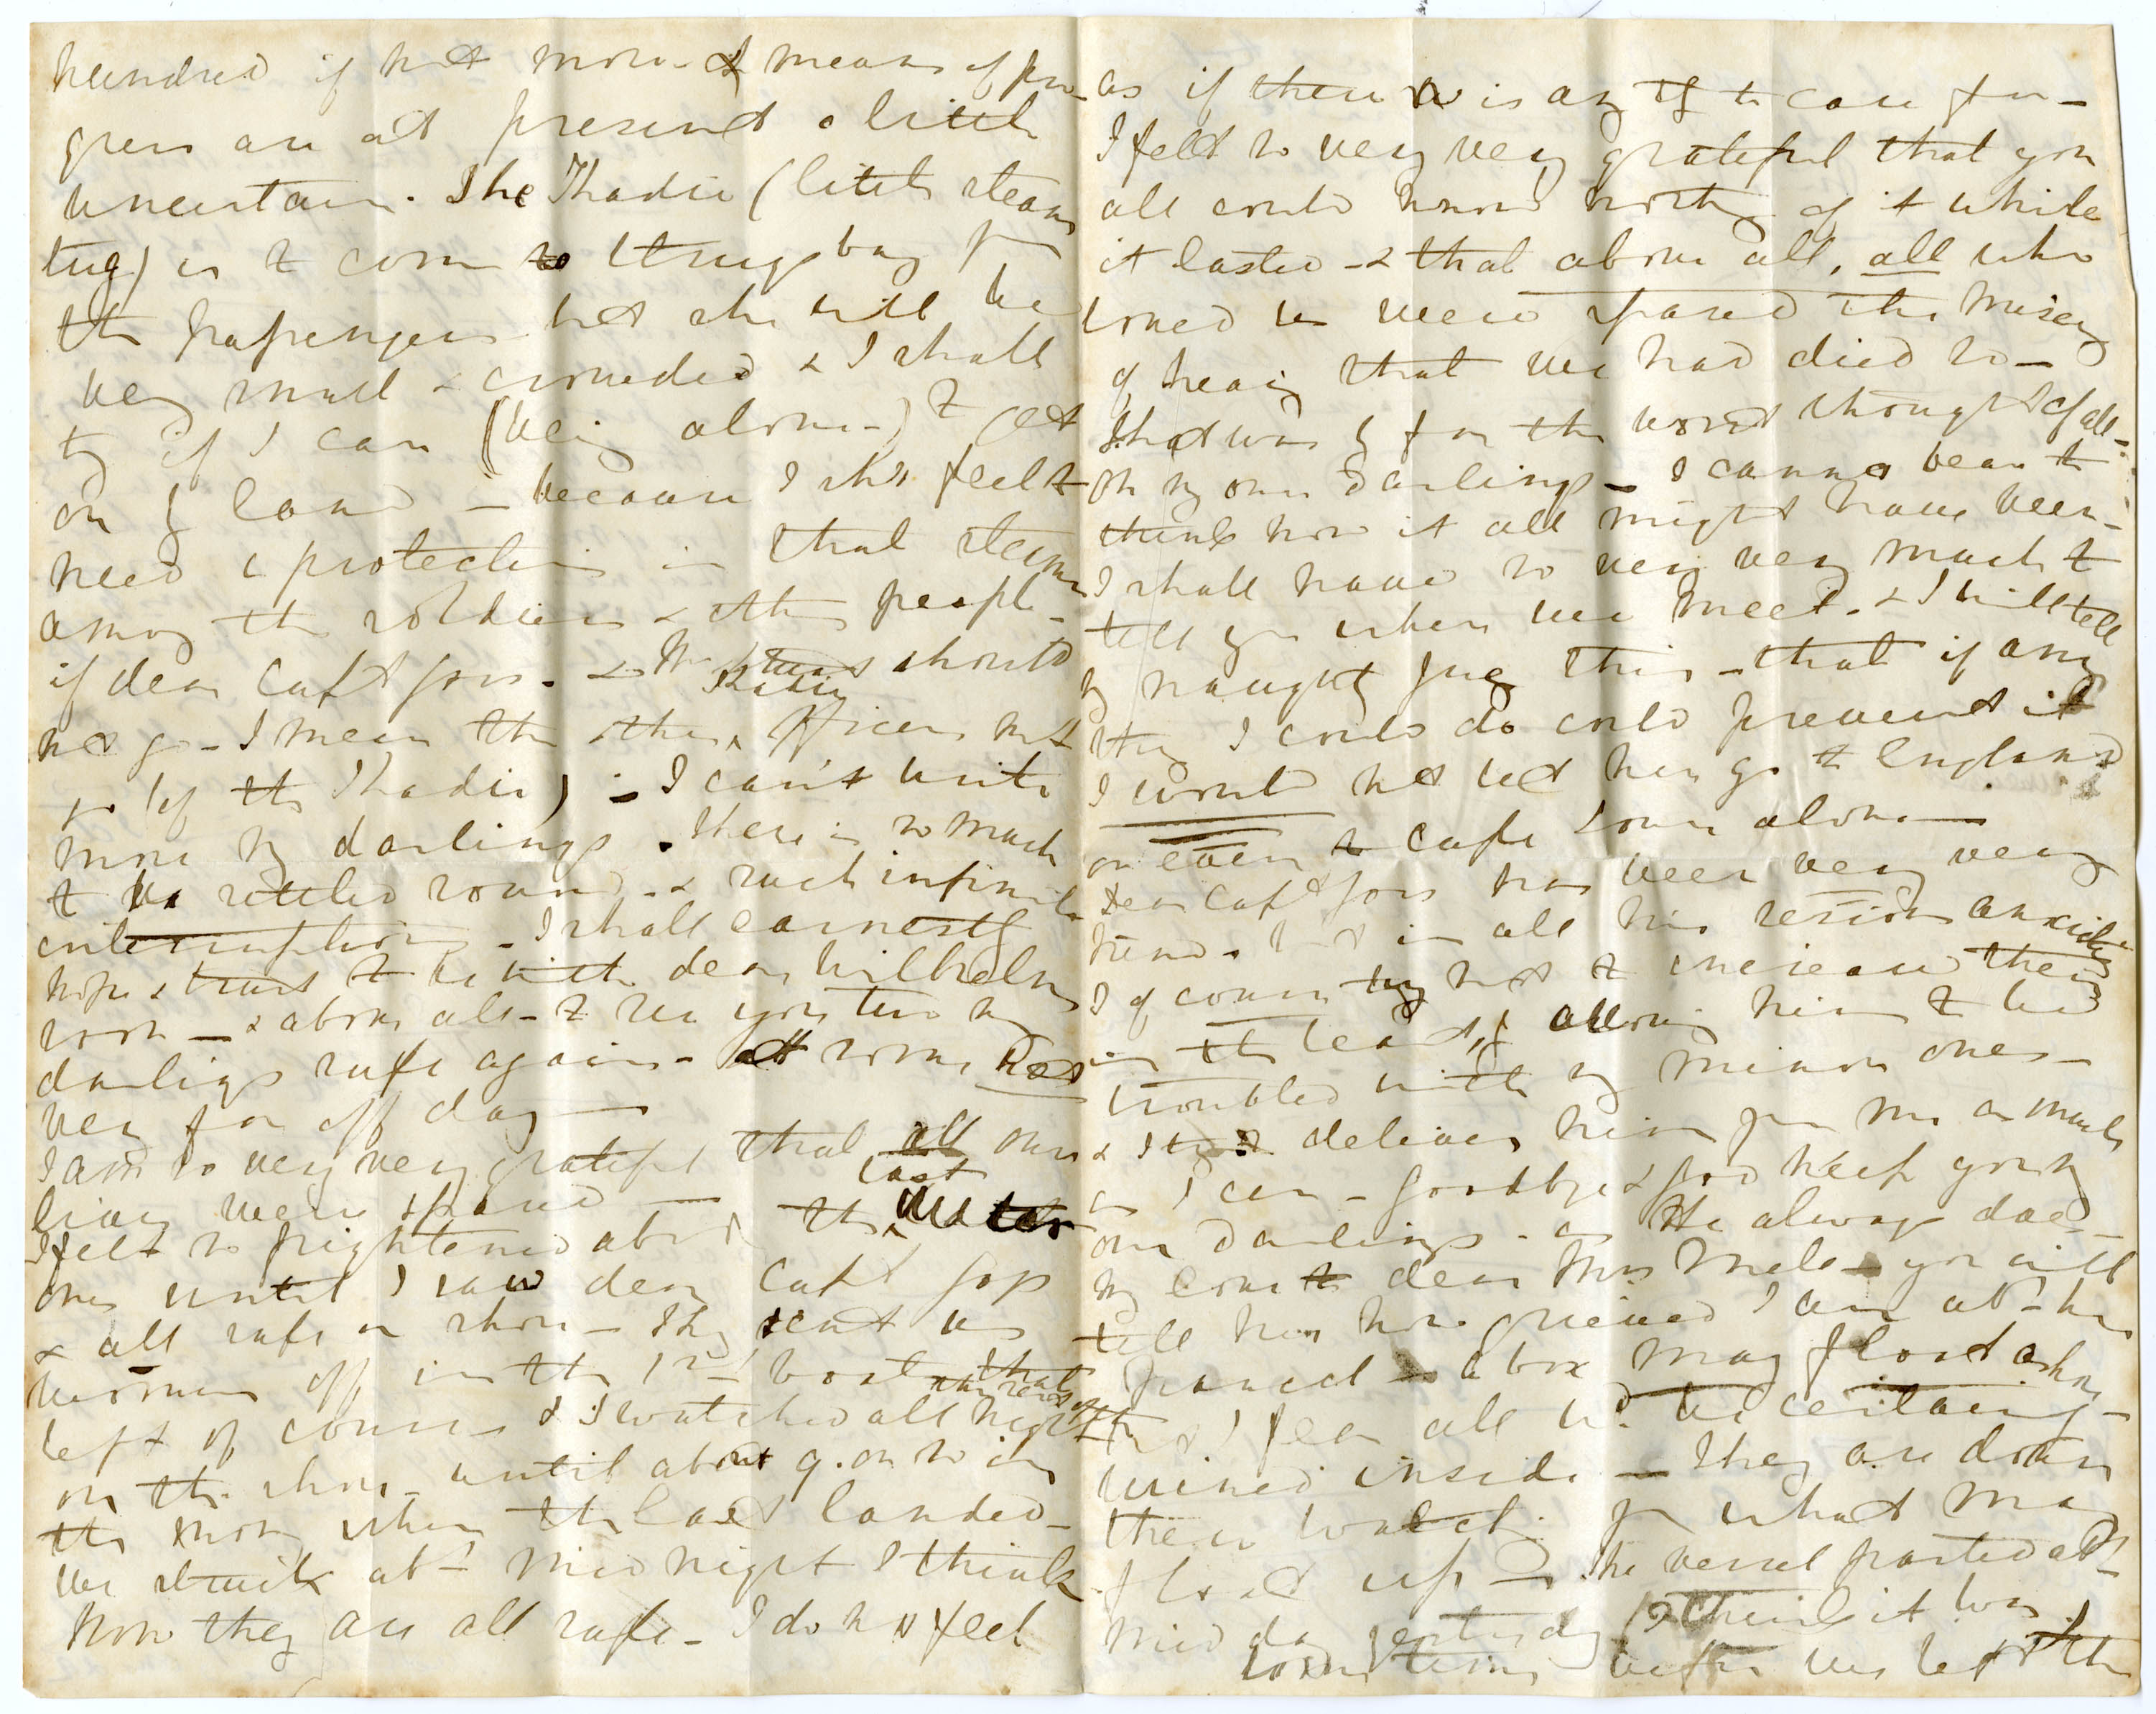 hundred if not more. & means of pro-
gress are at present a little
uncertain. The Thadie (little steam
tug) is to come to bay for
the passengers but she will be
very small & crowded & I shall
try if I can (being alone) to get
on by land – because I shd. feel the
need of protection in that steamer
among the soldiers & other people –
if dear Capt Jops. & Mr should
not go – I mean the other officers not
so (of the Thadie) – I can't write
more my darlings. There is so much
to be settled round – & such infinite
interruption – I shall earnestly
hope & trust to be with dear Wilhelm
soon – & above all – to see you two my
darlings safe again – at some not
very far off day —
I am so very very grateful that all our
lives were spared — the last
I felt so frightened abt
ones until I saw dear Capt Jops
& all safe on shore – They sent us
women off in the 1st boat that
left of course & I watched all night
on the shore until about 9. or so in
the morng when the last landed –
we struck abt midnight I think
Now they are all safe – I do not feel
as if there is any thg to care for –
I felt so very very grateful that you
all could know nothg of it while
it lasted – & that above all, all who
loved us were spared the misery
of hearing that we had died so –
That was by far the worst thought of all –
Oh my own darlings – I cannot bear to
think how it all might have been –
I shall have so very very much to
tell you when we meet. & I will tell
my naughty this – that if any
thg I could do could prevent it
I would not let her go to England
or even to Cape Town alone —
Dear Capt Jops has been very very
kind. but in all his serious anxieties
I of course try not to increase them
in the least, by allowing him to be
troubled with my minor ones –
& I deliver him from me as much
as I can – Goodbye & God keep you my
own darlings – as He always does –
my love to dear Mrs – you will
tell her how grieved I am abt her
parcel – a box may float ashore
but I fear all wd. be certainly
ruined inside – They are down
there watchg for what may
float up – The vessel parted abt
mid day yesterday I think it was
some time before we left the